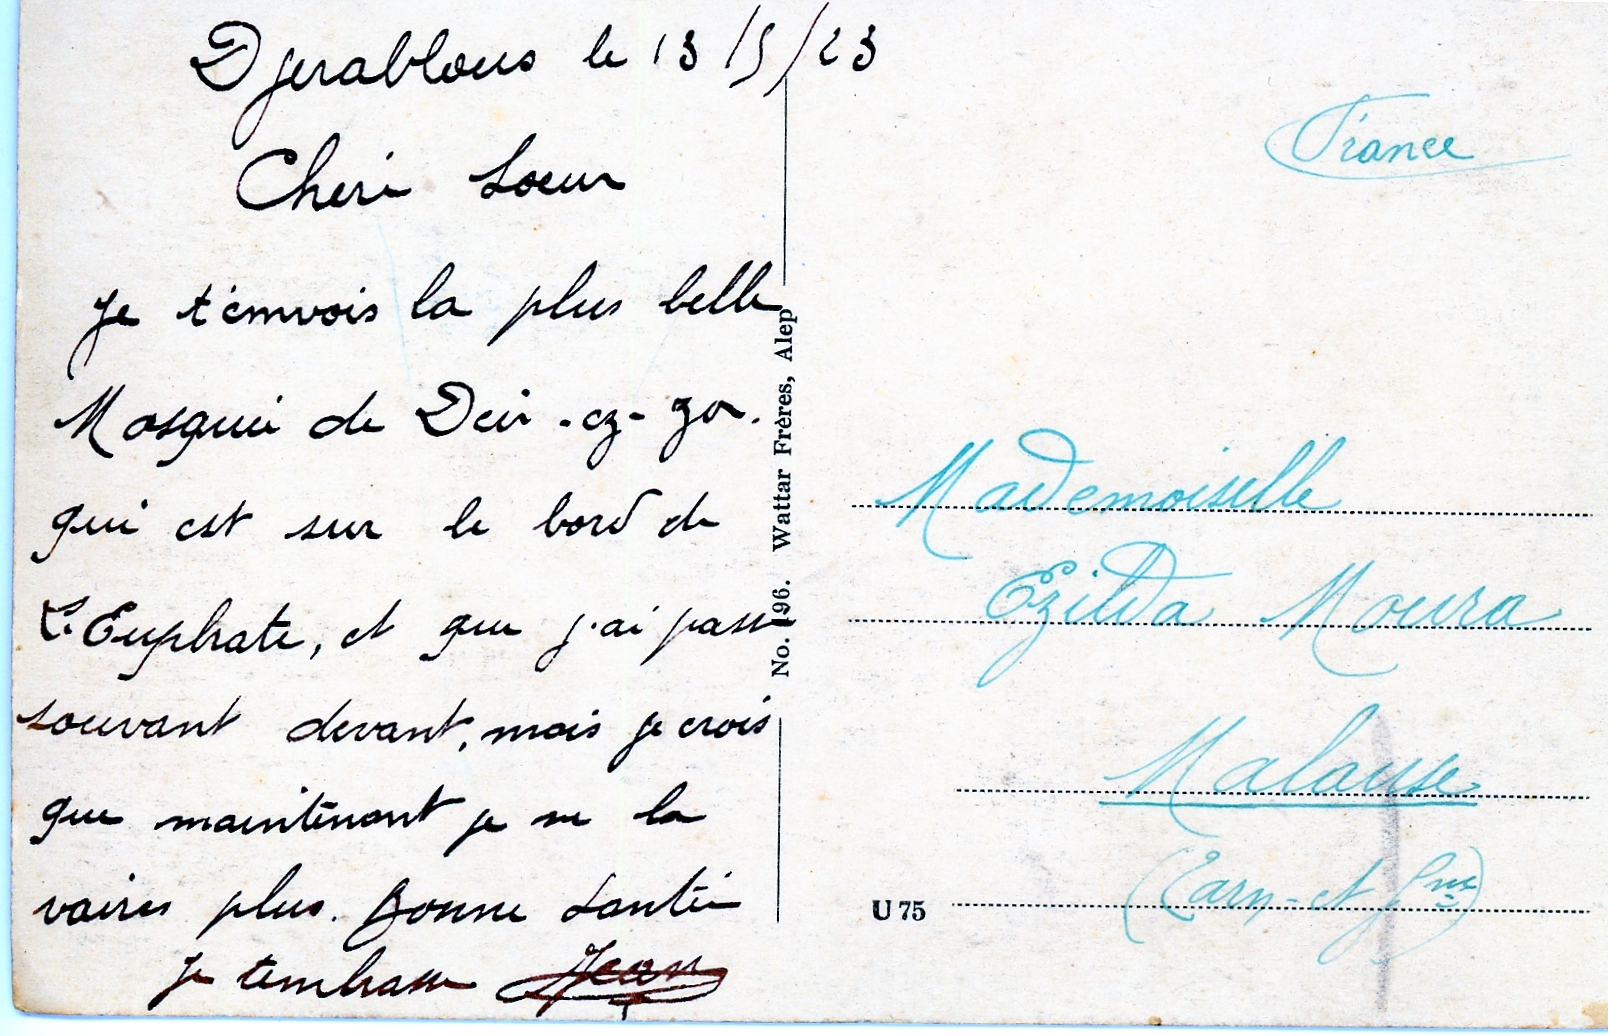 Djerablous le 13/5/23
Cheri Soeur
Je t'émvois la plus belle
Mosquéé de Deir-ez-zor.
qui est sur le bord de
L'Euphrate, et que j'ai passé
souvant devant, mais je crois
que maintenant je ne la
vairés plus. Bonne Santéé
Je tembrasse Jean
No. 196. Wattar Frères, Alep
France
Mademoiselle
Ezilda Moura
Malause
(Tarn-et Gne)
U 75